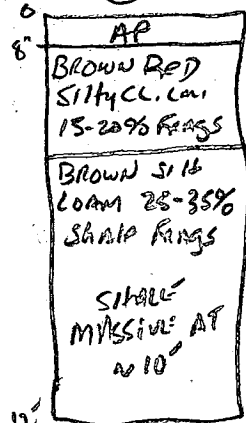 0
AP
8"
BROWN RED
Silty CL. Lom.
15-20% Frags
BROWN Silt
LOAM 25-35%
Shale Frags
SHALE
MASSIVE AT
~ 10'